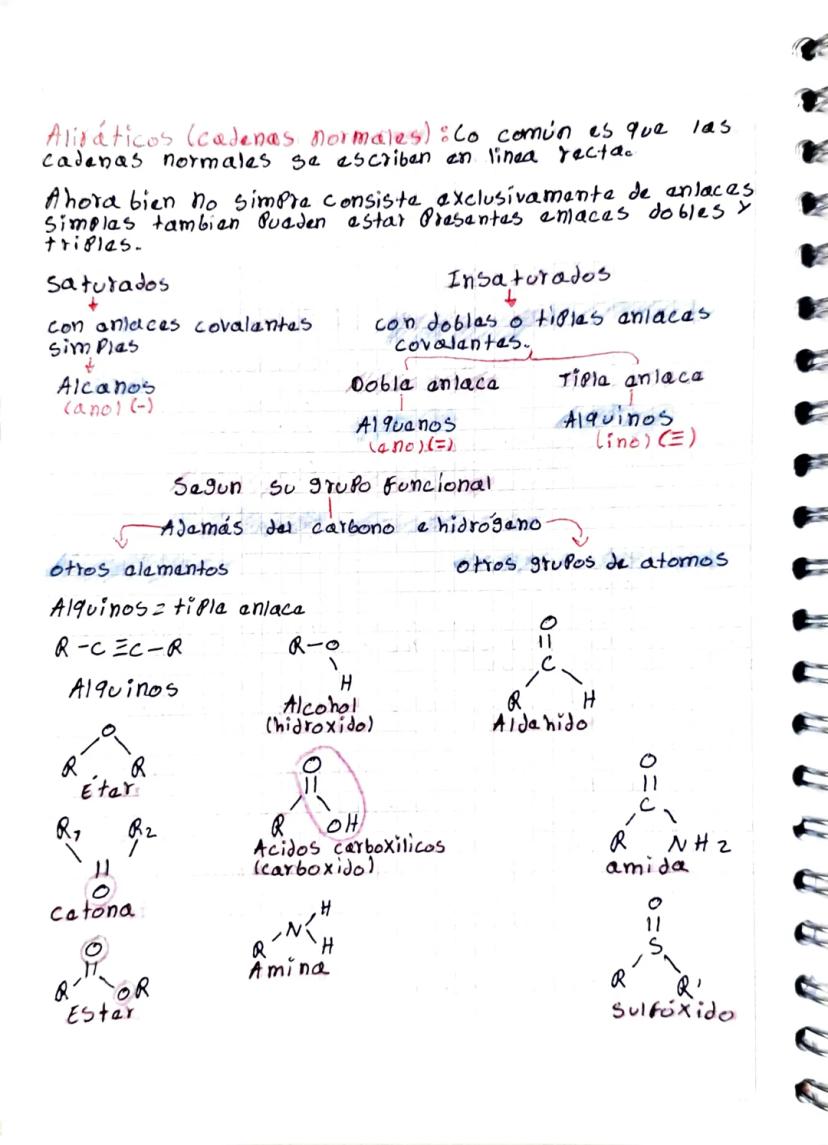 Alifáticos (cadenas normales): Lo común es que las
cadenas normales se escriban en linea recta.
Ahora bien no simpre consiste exclusivamente de enlaces
simples tambien pueden estar presentes enlaces dobles y
triples.
Saturados
Insaturados
con enlaces covalentes
simples
con dobles o tiples enlaces
covalentes.
Alcanos
(ano) (-)
Doble enlace
Tiple enlace
Alquenos
(eno) (=)
Alquinos
(ino) (≡)
Segun su grupo funcional
Además del carbono e hidrógeno
otros elementos
otros grupos de atomos
Alquinos = tiple enlace
R-C≡C-R
Alquinos
R-O
H
Alcohol
(hidroxido)
O
C
R H
Aldehido
O
R R
Éter
O
R OH
Acidos carboxilicos
(carboxido)
O
C
R NH2
amida
R1 R2
O
cetona
H
N
R H
Amina
O
S
R R'
Sulfóxido
O
R OR
Ester